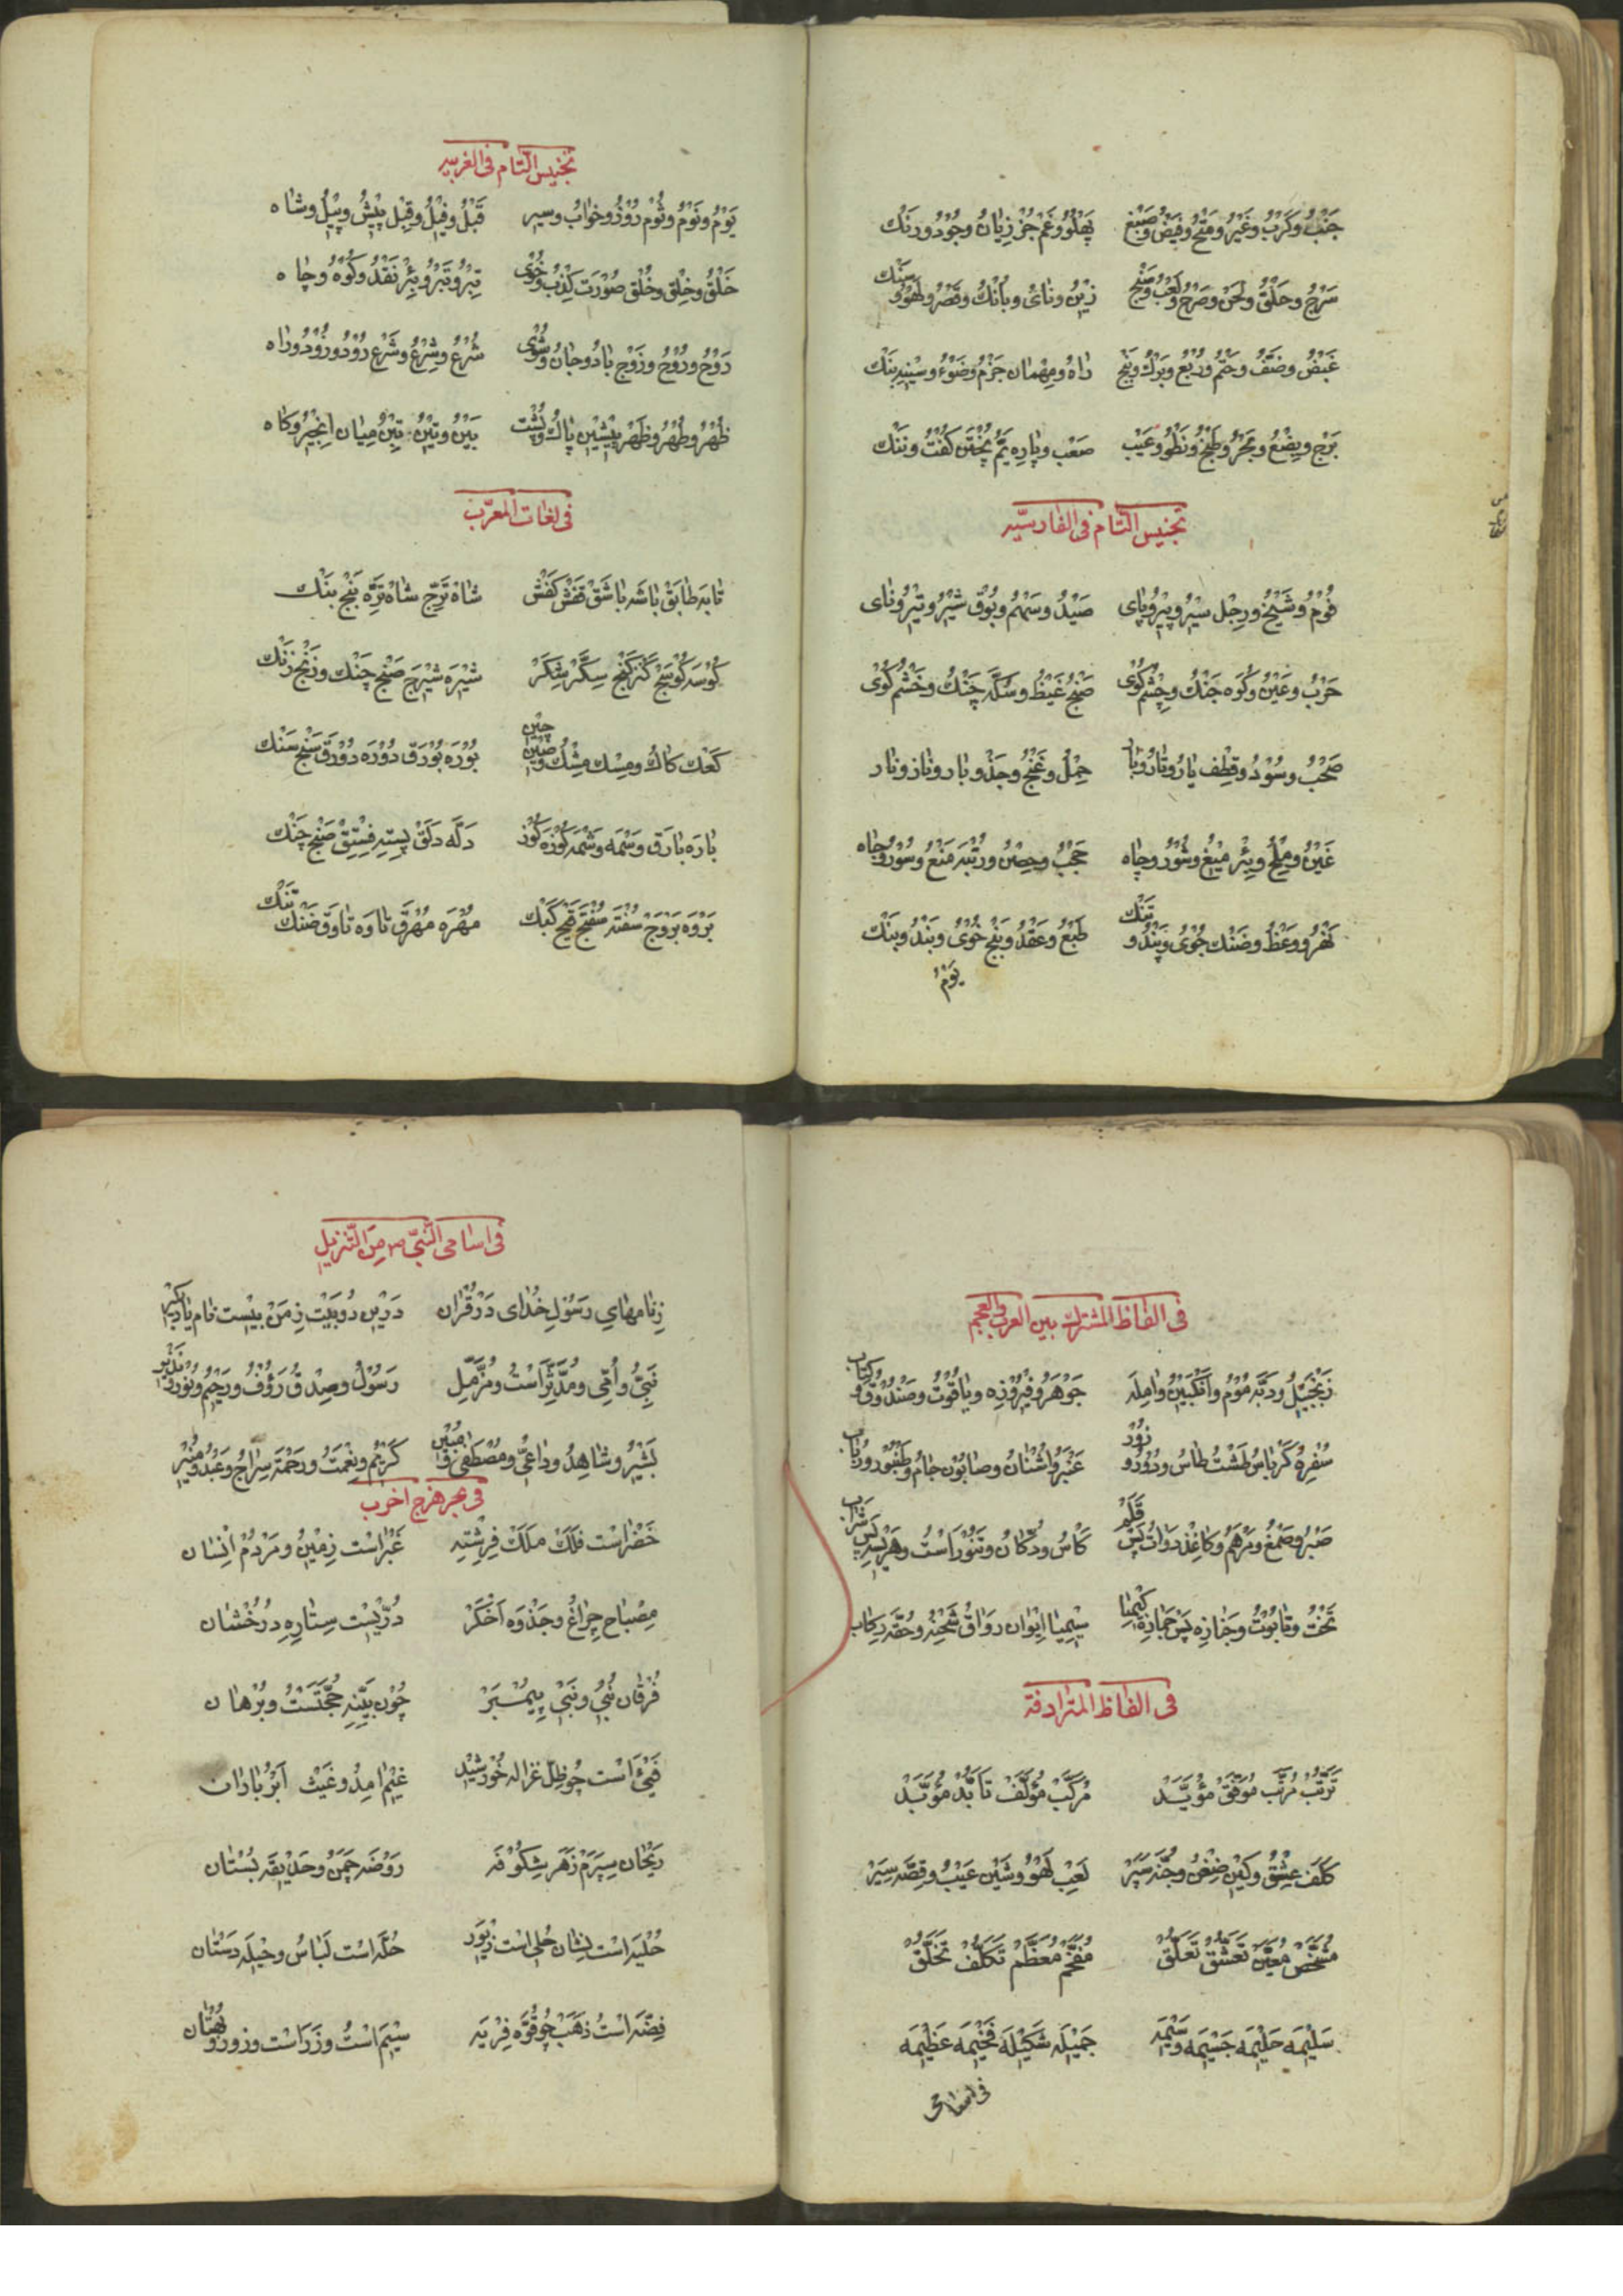 جَنْبُ وكَرْبُ وغَيْرُ ومَتْحُ وفَيْضُ وصَبْغ پَهْلُو وغَمْ جُزْ زِيَانُ وجُوْدُ ورَنْك
سَرْجُ وحَلْقُ ولَحْن وصَرْحُ ولَعْبُ وسَنْج زَيْنُ ونَاىُ وبَانْكُ وقَصْرُ ولَهْوُ وسَنْك
وضَيْفُ وحَتْمُ وبَنْج رَاهُ ومِهْمَان جَزْمُ وضَوْءُ بَنْك
ويِضْعُ وبَحْرُ وطَبْخُ وعَيْب صَعْب وپَارِه يَمُّ پُخْتَن كُفْتُ ونَنْك
تجنيس التّام فى الفارسيّه
فُوْمُ وشَيْخُ ورِجْل سِيْرُ وپِيْرُ وپَاى صَيْدُ وسَهْمُ وبُوْق شِيْرُ وتِيْرُ ونَاى
حَرْبُ وعَيْنُ وكُوَه جَنْكُ وچِشْم كُوْى صَنْجُ غَيْظُ وسِكَّه چَنْكُ وخَشْم كُوْى
صَحْبُ وسُوْدُ وقطِف يَارُ وتَارُ وبَار حِمْلُ وغَنْجُ وجَذْو بَار ونَاز ونَار
غَيْنُ ومِلْحُ وبِئْر مِيْغُ وشُوْرُ وچَاه حَجْبُ وحِصْنُ ورُتْبَه مَنْعُ وسُوْرُ وجَاه
نَهْرُ ووَعْظُ وضَنْك جُوْىُ وپَنْدُ وتَنْك طَبْعُ وعَقْدُ وبَنْج خُوْىُ وبَنْدُ وبَنْك
يَوْمُ
تجنيس التّام فى العربيه
يَوْمُ ونَوْمُ وثُوْم رُوْزُ وخوَابُ وسِير قَبْلُ وفِيْلُ وقِبْل پِيْشُ وپِيْلُ وشَاه
خَلْقُ وخِلْق وخُلْق صُوْرَت كِذْبُ وخُوْى تِبْرُ وتَبْرُ وبِئْر نَقْدُ وكُوْهُ وچَاه
رَوْحُ ورُوْحُ وزَوْج بَادُ وجَانُ وشُوْى شَرْعُ وشِرْعُ وشَرْع رُوْدُ وزُوْدُ وراه
ظُهْرُ وطُهْرُ وظَهْر پِيْشِيْن پَاكُ وپُشْت بَيْنُ وتِيْنُ تِبْن مِيَان اَنْجِيْرُ وكَاه
فى لغات المعرّب
تَابَه طَابَقْ بَاشَه بَاشَقْ قَفْش كَفْش شَاه تَرّج شَاه تَرّه بَنْج بَنْك
كُوْسَه كُوْسَجْ كَنْز كَنْج سُكَّرْ شِكَرْ شِيْرَه شِيْرَج صَنْج چَنْك وزَنْج زَنْك
كَعْك كَاكُ ومِسْك مِشْكُ وصِيْن چِيْن بُوْرَه بُوْرَق دُوْرَه دَوْرَق سَنْج سَنْك
بَارَه بَارَق وَسْمَه وَشْمَه كُوْزَه كُوْز دَلَّه دَلَقْ پِسْتَه فِسْتِقْ صَنْج چَنْك
بَرْوَه بَرْوَجْ سُفْتَه سُفْتَج قَبْج كَبْك مُهْرَه مُهْرَق تَاوَه تَاوَق ضَنْك تَنْك
فى الفاظ المشترك بين العرب والعجم
زَنْجَبِيْلُ ودَبَّه مُوْمُ وَانْكَبِيْنُ وامِلَه جَوْهَرُ وفِيْرُوْزِه ويَاقُوْتُ وصَنْدُوْقُ وكتاب
سُفْرِهُ كَرْبَاسُ طَشْتُ طَاسُ ودُوْدُ وزُوْر عَنْبَرُ واُشْنَانُ وصَابُوْن جَامُ وطَنْبُوْرُ ورَبَاب
صَبْرُ وصَمْغُ ومَرْهَمُ وكَاغِذْ دَوَاتْ پَسْ قَلَمْ كَاسُ ودُكَانُ وتَنُوْر اَسْتُ وهَرِيْسَه پَسْ شَرَاب
تَخْتُ وتَابُوْتُ وجَنَازِه پَسْ جَمَازِهْ كِيْمِيَا سِيْمِيَا اِيْوَان رَوَاقُ شَحْنِهُ وحُقَّه رِكَاب
فى الفاظ المترادفة
تَرَتُّبْ مُرَتَّب مُوَفَّقْ مُؤَيَّدْ مُرَكَّبْ مُؤَلَّفْ تَاَبُّدْ مُؤَبَّدْ
كَلَف عِشْقُ وكَيْن ضِغْنُ وجُنَّه سِپَرْ لَعِبْ لَهْوُ وشَيْن عَيْبُ وقِصَّه سِيَرْ
مُشَخَّصْ مُعَيَّنْ تَعَشُّقْ تَعَلُّقْ مُفَخَّمْ مُعَظَّمْ تَكَلُّفْ تَخَلُّقْ
سَلِيْمَه حَلِيْمَه جَسِيْمَه وَسِيْمَه جَمِيْلَه شَكِيْلَه فَخِيْمَه عَظِيْمَه
فى اسامى
فى اسامى النّبىّ ص من التّنزيل
زِنَامهَاىِ رَسُوْلِ خُدَاى دَرْ قُرْان دَرِيْن دُوبَيْت زِمَنْ بِيْست نَام يَادبكير
نَبِىُّ واُمِّى ومُدَّثِّر اَسْتُ ومُزَّمِّل رَسُوْلُ وصِدْقُ رَؤُفُ ورَحِيْمُ ونُوْرُ ونَذِيْر
بَشِيْرُ وشَاهِدُ ودَاعِىُّ ومُصْطَفَى ومُبِيْن كَرِيْمُ ونِعْمَتُ ورَحْمَة سِرَاجُ وعَبْدُ ومُنِيْر
فى بحر هزج اخرب
خَضْرَاسْت فَلَكْ مَلَكْ فِرِشْتِه غَبْرَاسْت زِمِيْنُ ومَرْدُمْ اِنْسَان
مِصْبَاح چِرَاغُ وجَذْوَه اَخْكَرْ دُرّيْسْت سِتَارِه دِرُخْشَان
فُرْقَان نُبِىُ ونَبِىْ پِيَمْبَرْ چُوْن بَيِّنَه حُجَّتَسْتُ وبُرْهَان
فَىْءْ اَسْت چُو ظِلّ غزاله خُوْرشِيْد غَيْم امدُ وغَيْث اَبْرُ بَارَان
رَيْحَان سِپَرَمْ زَهَر شِكُوْفَه رَوْضَه چَمَنُ وحَدِيْقَه بُسْتَان
حُلْيَه اسْت نِشَان حُلِى اسْت زِيْوَر حُلَّه اسْت لِبَاسُ وحِيْلَه دَسْتَان
فِضَّه اسْتُ ذَهَبْ چُو قُوَّه فِرْيَه سِيْم اسْتُ وزَرَ اسْت وزورُ وبُهْتَان